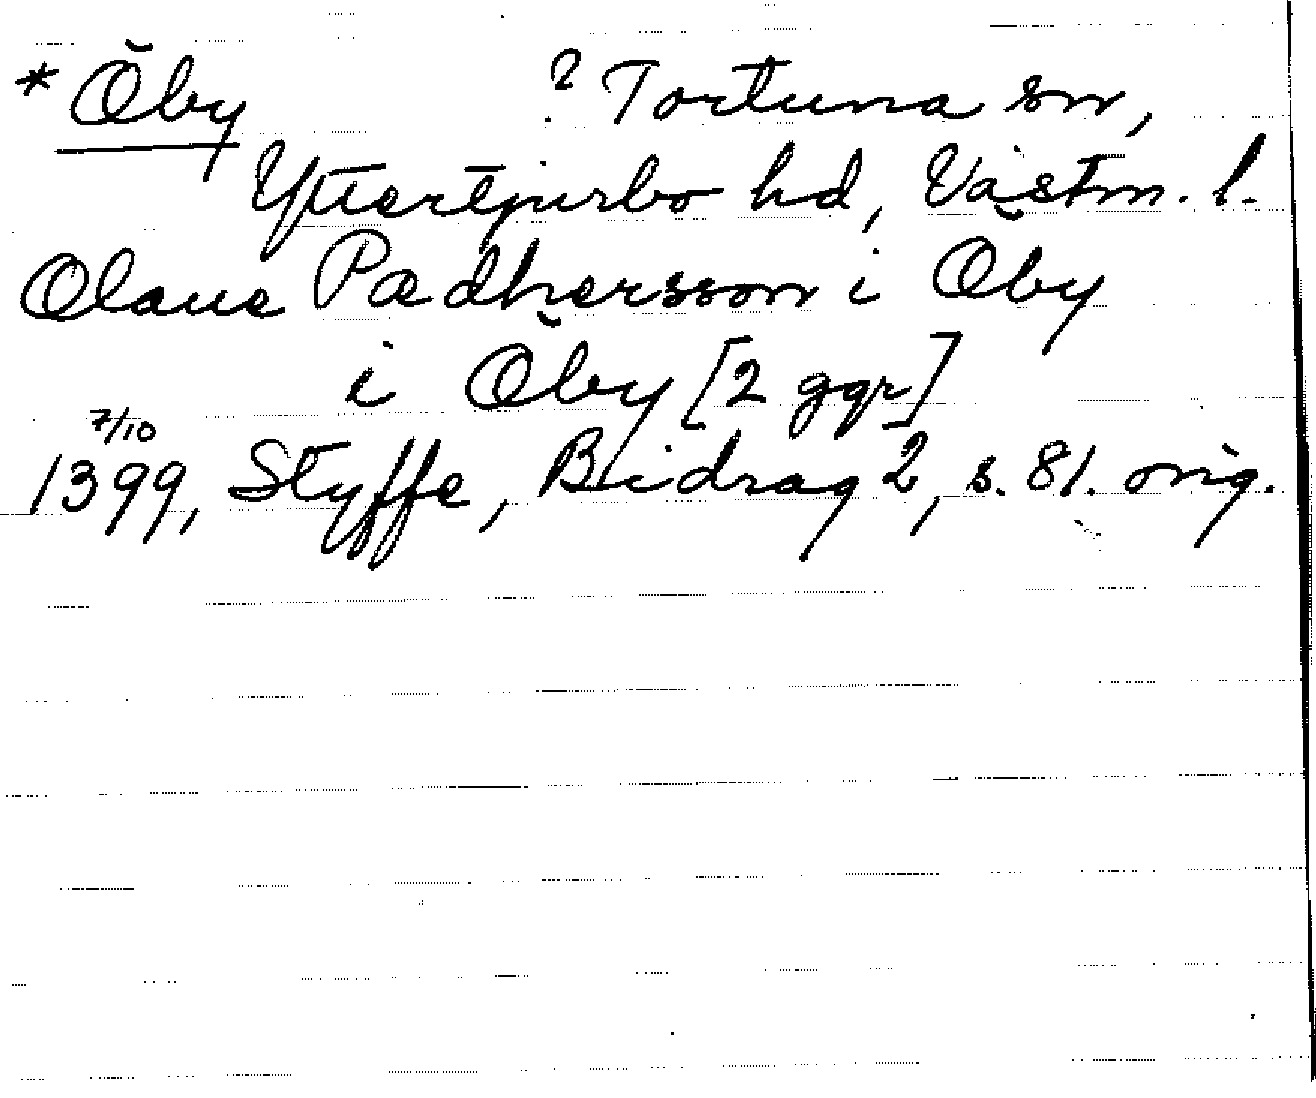 * Öby ? Tortuna sn,
Yttertjurbo hd, Västm. l.
Olaue Pædhersson i Öby
i Öby [2 ggr]
7/10
1399, Styffe, Bidrag 2, s. 81. orig.